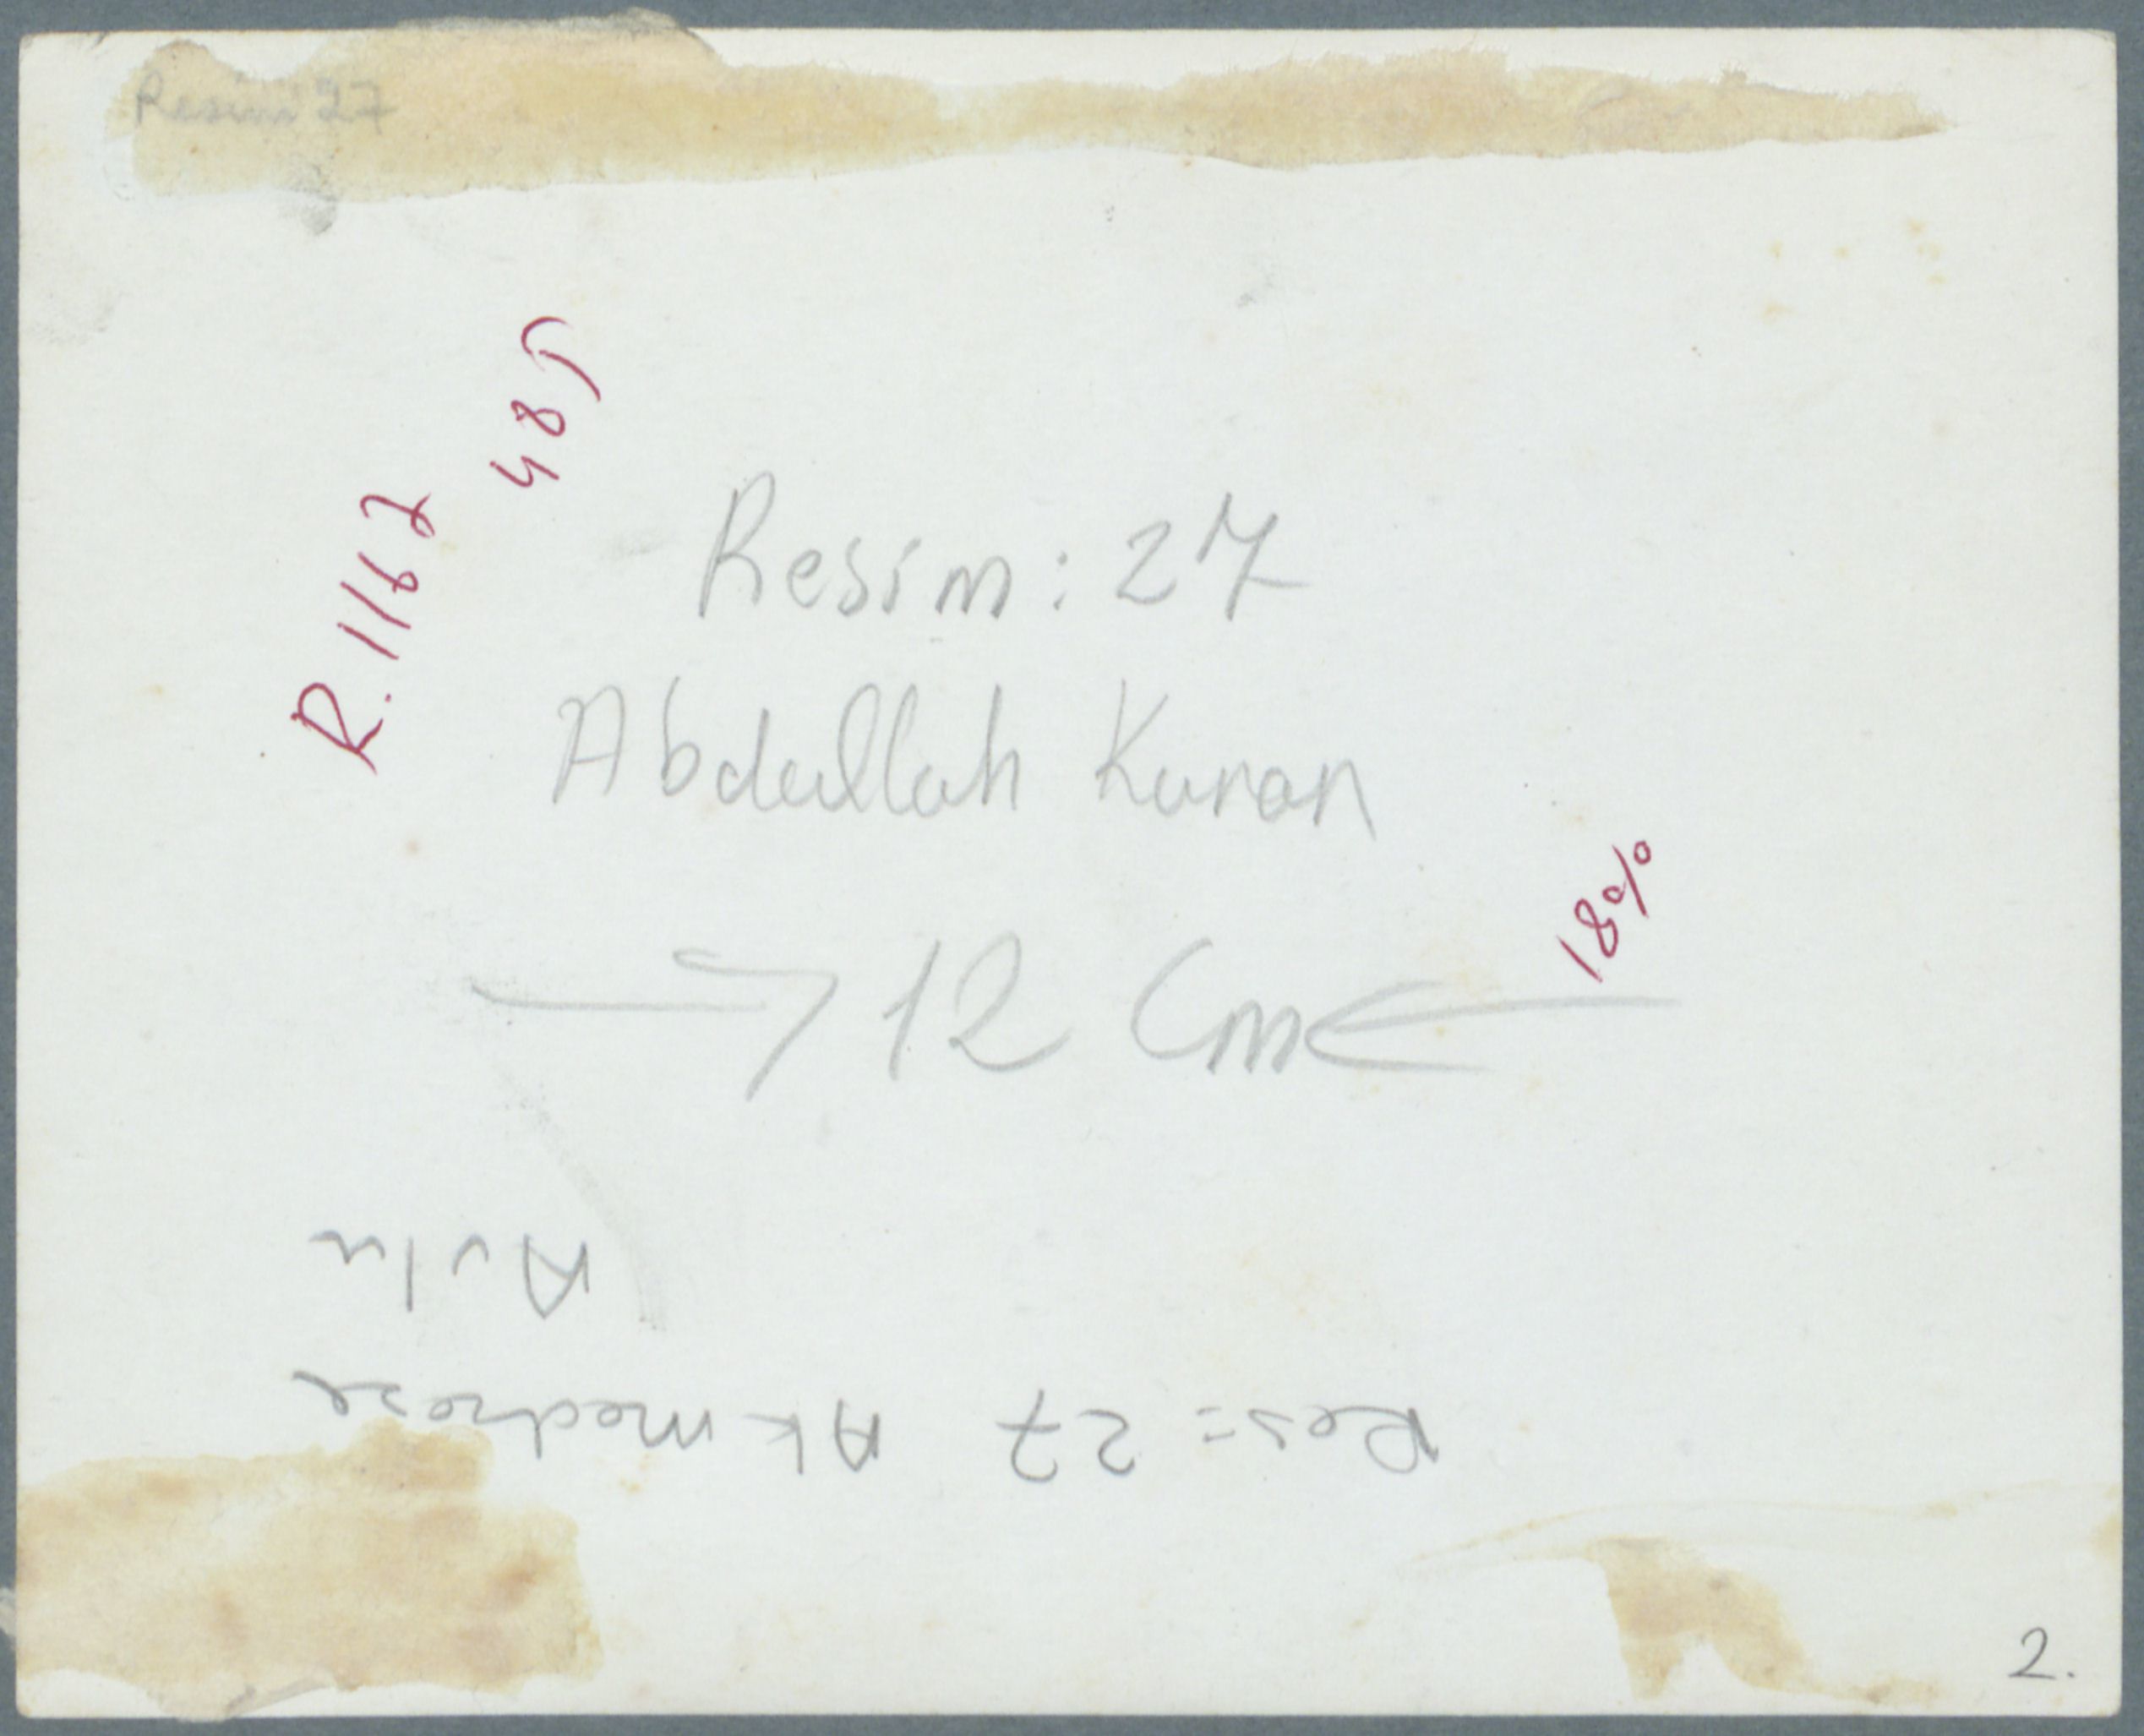 Resim 27
R. 1162
485
Resim : 27
Abdullah Kuran
12 Cm
18%
Res: 27 Ak medrese
Avlu
2.